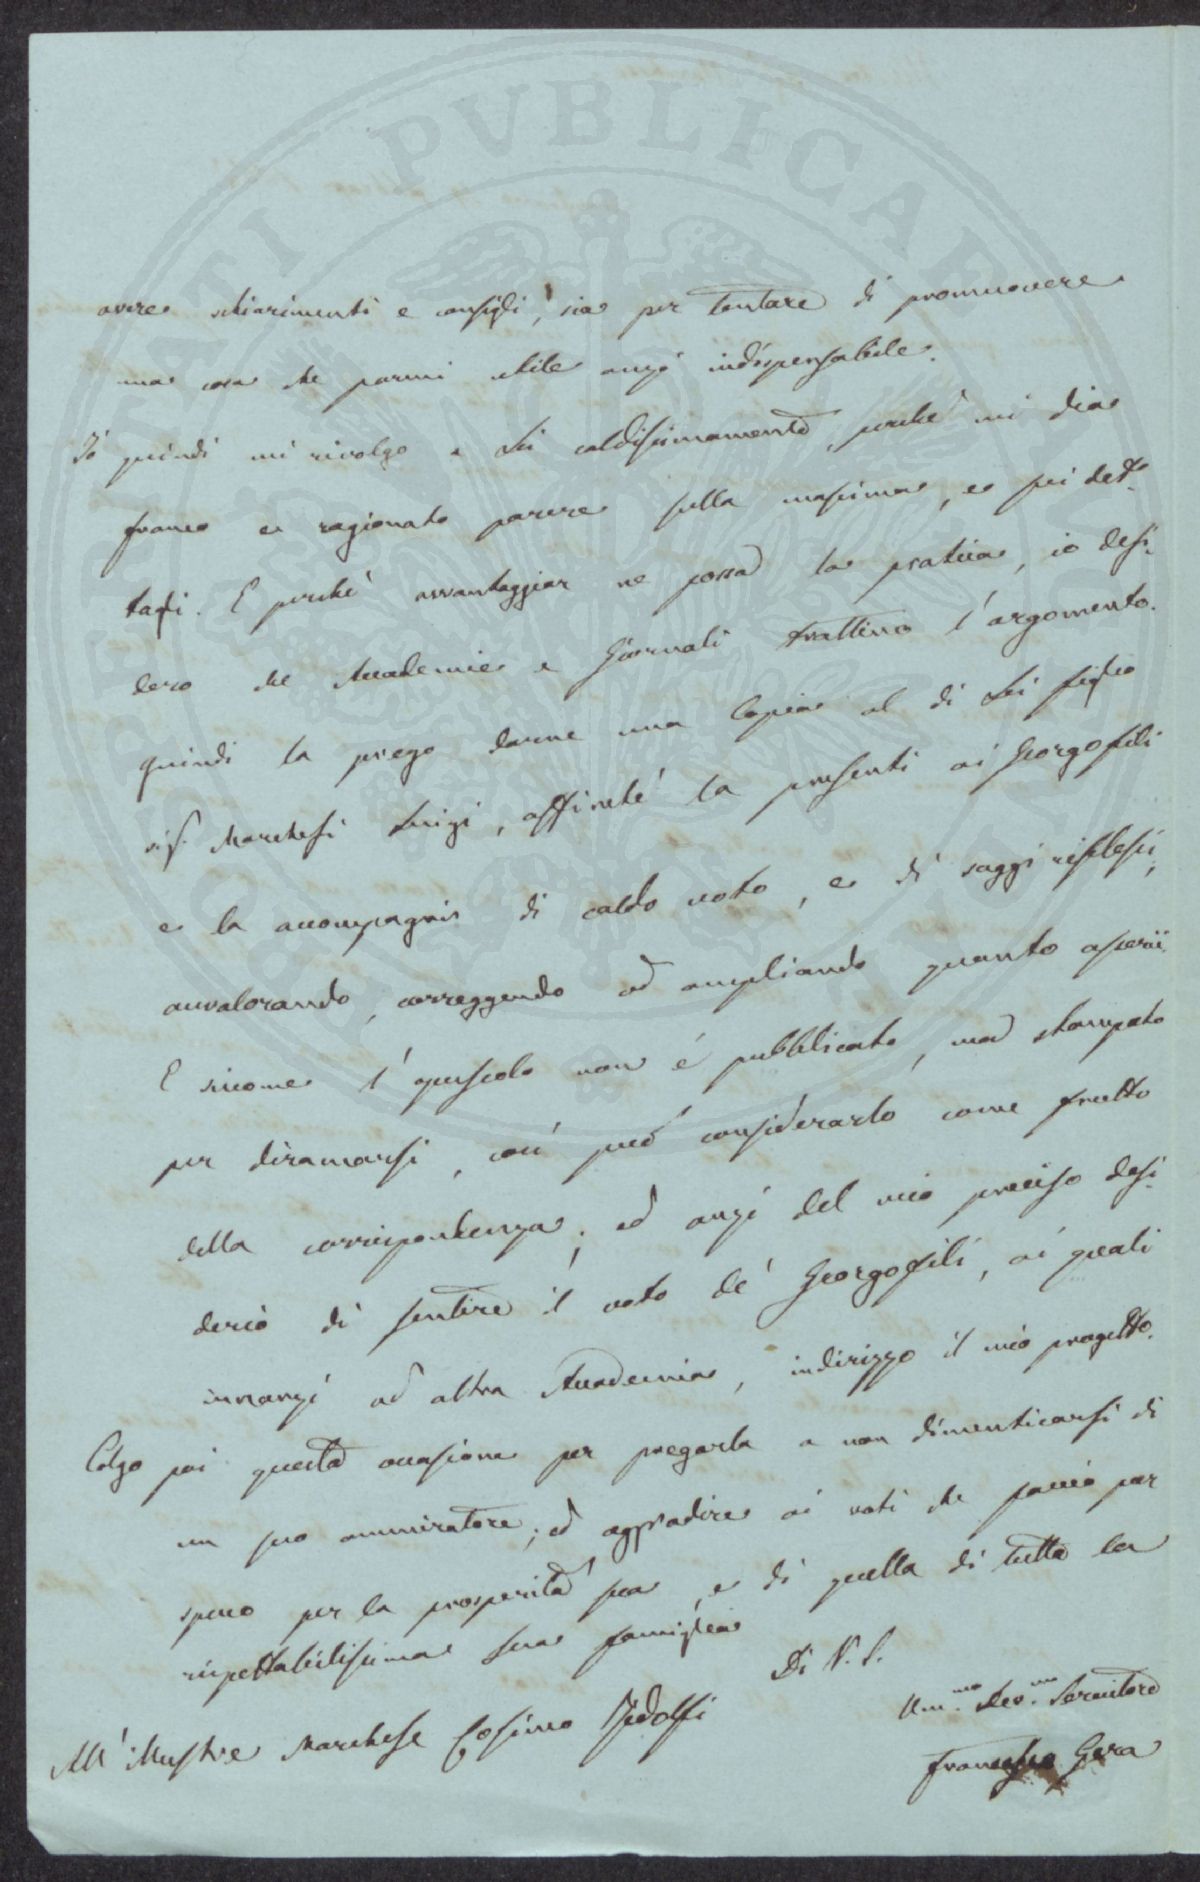 avere schiarimenti e consigli, sia per tentare di promuovere
una cosa che parmi utile anzi indispensabile.
Io quindi mi rivolgo a Lei caldissimamente, perchè mi dia
franco e ragionato parere sulla massima, e sui det-
tagli. E perchè avvantaggiar ne possa la pratica, io desi-
dero che Accademie e Giornali trattino l'argomento.
quindi la prego darne una Copia al di Lei figlio
sig. Marchesi Luigi, affinchè la presenti ai Georgofili
e la accompagni di caldo voto, e di saggi riflessi,
avvalorando, correggendo ed ampliando quanto asserii.
E siccome l'opuscolo non é pubblicato, ma stampato
per diramarsi, così può considerarlo come frutto
della corrispondenza, ed anzi del mio preciso desi-
derio di sentire il voto de' Georgofili, ai quali
innanzi ad altra Accademia, indirizzo il mio progetto.
Colgo poi questa occasione per pregarla a non dimenticarsi di
un suo ammiratore; ed aggradire ai voti che faccio per
spero per la prosperità sua e di quella di tutta la
rispettabilissima sua famiglia
Di V. S.
Um.mo Dev.mo Servitore
Francesco Gera
All' Illustre Marchese Cosimo Ridolfi
PROSPERITATI PVBLICAE AVGENDAE